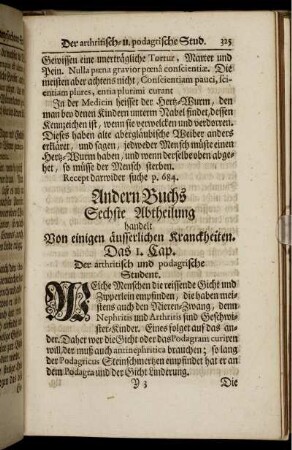 Der arthritisch- u. podagrische Stud. 325
Gewissen eine unerträgliche Tortur, Marter und
Pein. Nulla pœna gravior pœnâ conscientiæ. Die
meisten aber achtens nicht, Conscientiam pauci, sci-
entiam plures, entia plurimi curant
In der Medicin heisset der Hertz-Wurm, den
man bey denen Kindern unterm Nabel findet, dessen
Kennzeichen ist, wenn sie verwelcken und verdorren.
Dieses haben alte abergläubische Weiber anders
erkläret, und sagen, jedweder Mensch müste einen
Hertz-Wurm haben, und wenn derselbe oben abge-
het, so müsse der Mensch sterben.
Recept darwider suche p. 684.
Andern Buchs
Sechste Abtheilung
handelt
Von einigen äusserlichen Kranckheiten.
Das 1. Cap.
Der arthritisch und podagrische
Student.
WElche Menschen die reissende Gicht und
Zipperlein empfinden, die haben mei-
stens auch den Nieren-Zwang, denn
Nephritis und Arthritis sind Geschwi-
ster-Kinder. Eines folget auf das an-
der. Daher wer die Gicht oder das Podagram curiren
will, der muß auch antinephritica brauchen; so lang
der Podagricus Steinschmertzen empfindet hat er an
dem Podagra und der Gicht Linderung.
Y 3 Die